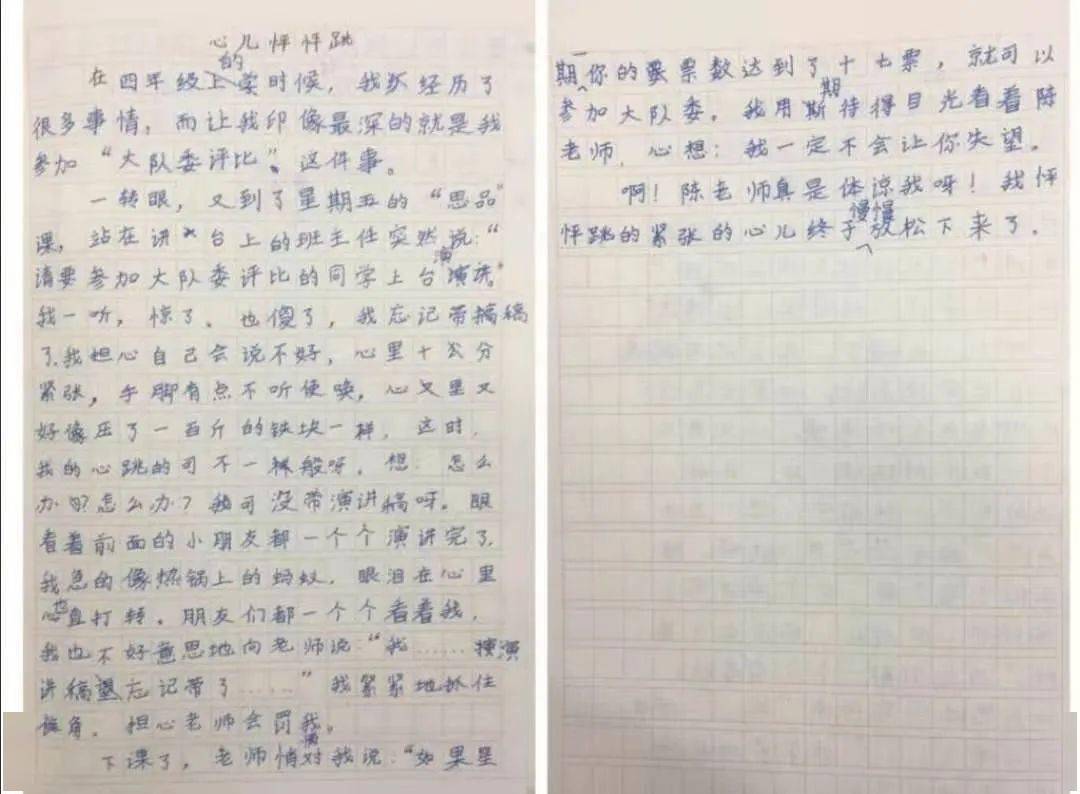 心儿怦怦跳
在四年级上的时候，我经历了
很多事情，而让我印像最深的就是我
参加“大队委评比”。这件事。
一转眼，又到了星期五的“思品”
课，站在讲台上的班主任突然说：“
请要参加大队委评比的同学上台演讲”
我一听，惊了。也傻了，我忘记带稿
了，我担心自己会说不好，心里十分
紧张，手脚有点不听使唤，心里又
好像压了一百斤的铁块一样，这时，
我的心跳的可不一般呀，想：怎么
办？怎么办？我可没带演讲稿呀。眼
看着前面的小朋友都一个个演讲完了，
我急的像热锅上的蚂蚁，眼泪在心里
也直打转。朋友们都一个个看着我，
我也不好意思地向老师说：“我……演
讲稿忘记带了……”我紧紧地抓住
角，担心老师会罚我。
下课了，老师悄悄对我说：“如果星
期一你的票数达到了十七票，就可以
参加大队委。我用期待得目光看着陈
老师，心想：我一定不会让你失望。
啊！陈老师真是体谅我呀！我怦
怦跳的紧张的心儿终于慢慢放松下来了。